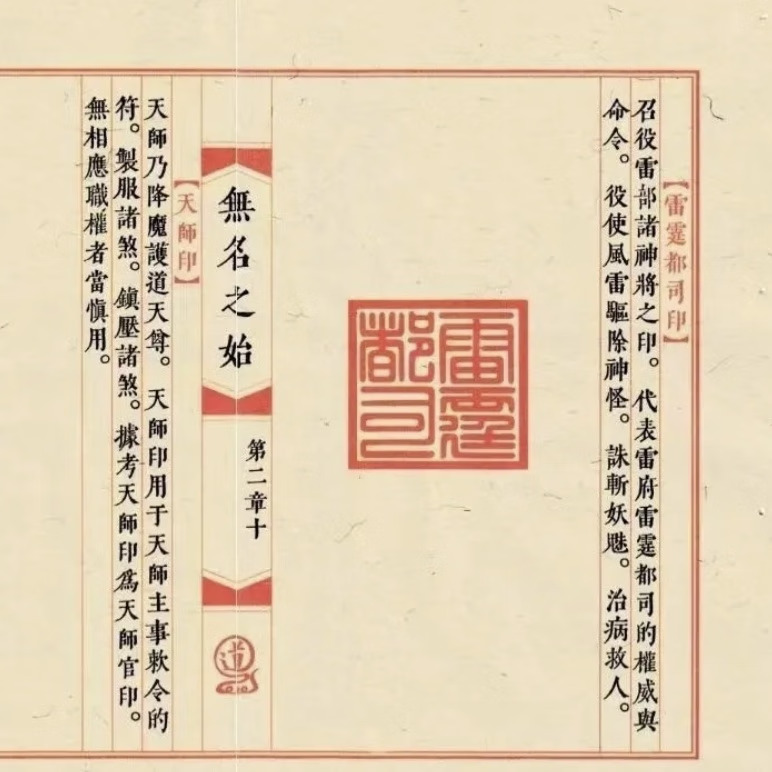 【雷霆都司印】
召役雷部諸神將之印。代表雷府雷霆都司的權威與
命令。役使風雷驅除神怪。誅斬妖魃。治病救人。
雷霆
都司
無名之始
第二章十
道
【天師印】
天師乃降魔護道天尊。天師印用于天師主事敕令的
符。製服諸煞。鎮壓諸煞。據考天師印爲天師官印。
無相應職權者當慎用。